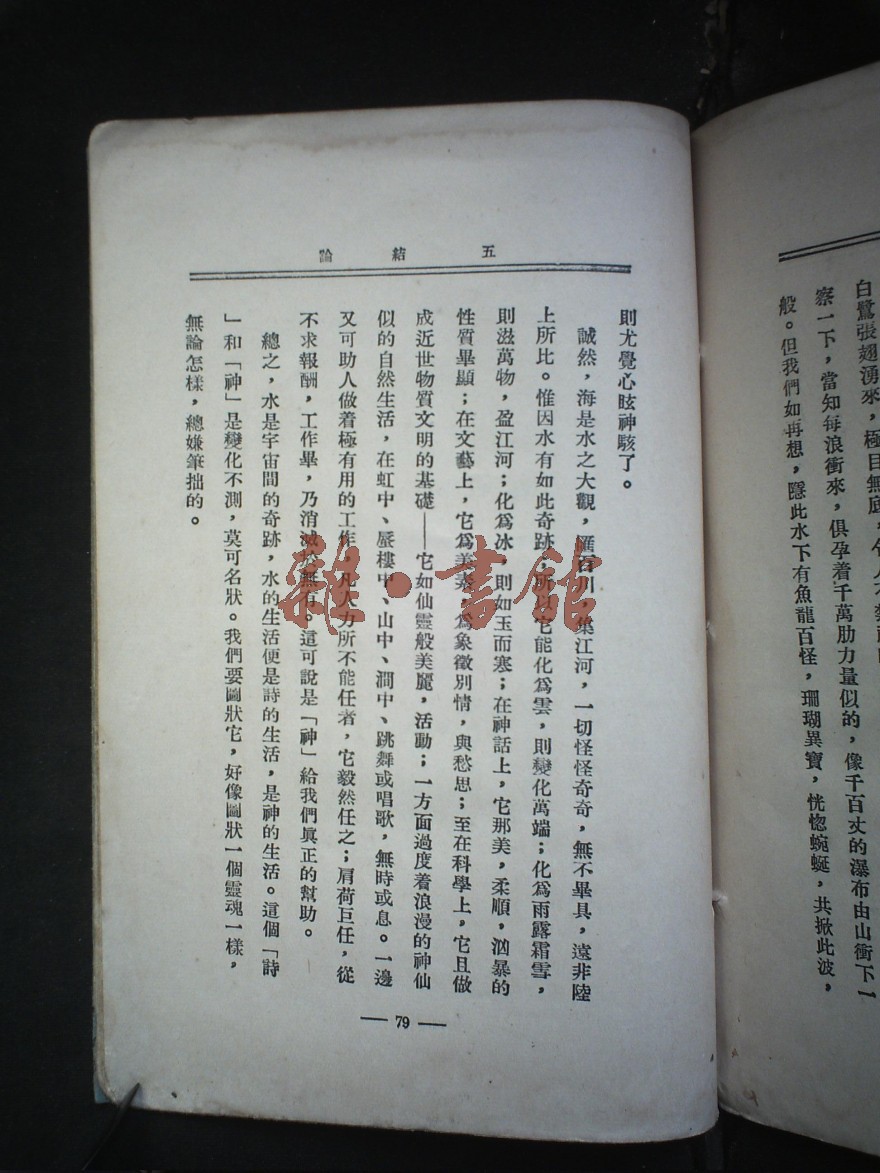 白鷺張翅湧來，極目無底，令人不禁
察一下，當知每浪衝來，俱孕着千萬肋力量似的，像千百丈的瀑布由山衝下一
般。但我們如再想，隱此水下有魚龍百怪，珊瑚異寶，恍惚蜿蜒，共掀此波，
五 結論
則尤覺心眩神駭了。
誠然，海是水之大觀，匯百川，集江河，一切怪怪奇奇，無不畢具，遠非陸
上所比。惟因水有如此奇跡；所以它能化爲雲，則變化萬端；化爲雨露霜雪，
則滋萬物，盈江河；化爲冰，則如玉而寒；在神話上，它那美，柔順，汹暴的
性質畢顯；在文藝上，它爲美素，爲象徵別情，與愁思；至在科學上，它且做
成近世物質文明的基礎——它如仙靈般美麗，活動；一方面過度着浪漫的神仙
似的自然生活，在虹中、蜃樓中、山中、澗中、跳舞或唱歌，無時或息。一邊
又可助人做着極有用的工作，凡人力所不能任者，它毅然任之；肩荷巨任，從
不求報酬，工作畢，乃消滅於無有。這可說是「神」給我們眞正的幫助。
總之，水是宇宙間的奇跡，水的生活便是詩的生活，是神的生活。這個「詩
」和「神」是變化不測，莫可名狀。我們要圖狀它，好像圖狀一個靈魂一樣，
無論怎樣，總嫌筆拙的。
— 79 —
雜·書館